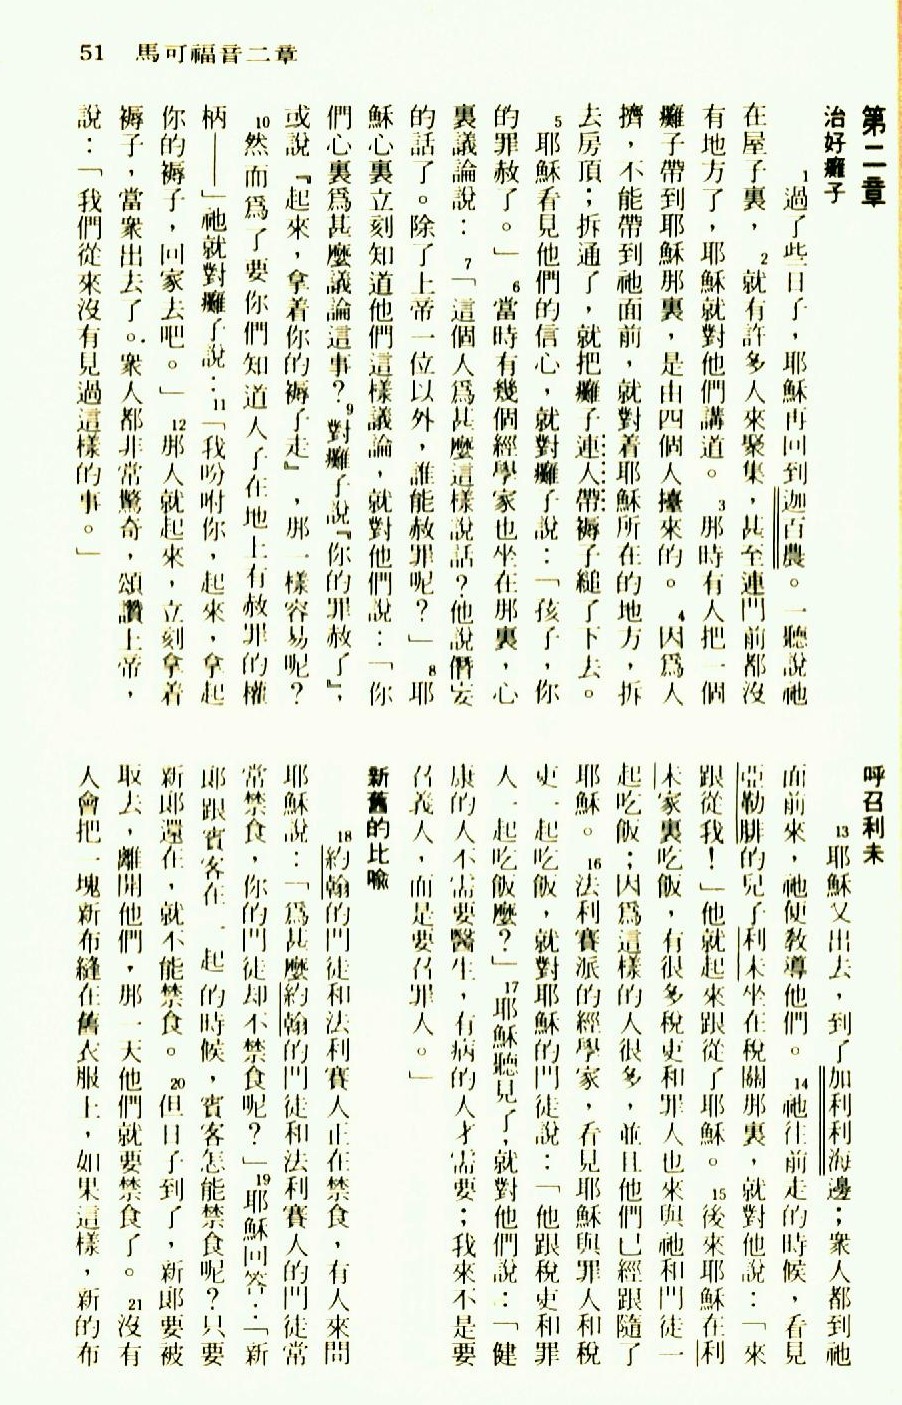 51 馬可福音二章
第二章
治好癱子
1過了些日子，耶穌再回到迦百農。一聽說祂
在屋子裏，2就有許多人來聚集，甚至連門前都沒
有地方了，耶穌就對他們講道。3那時有人把一個
癱子帶到耶穌那裏，是由四個人擡來的。4因爲人
擠，不能帶到祂面前，就對着耶穌所在的地方，拆
去房頂；拆通了，就把癱子連人帶褥子縋了下去。
5耶穌看見他們的信心，就對癱子說：「孩子，你
的罪赦了。」6當時有幾個經學家也坐在那裏，心
裏議論說：7「這個人爲甚麼這樣說話？他說僭妄
的話了。除了上帝一位以外，誰能赦罪呢？」8耶
穌心裏立刻知道他們這樣議論，就對他們說：「你
們心裏爲甚麼議論這事？9對癱子說『你的罪赦了』，
或說『起來，拿着你的褥子走』，那一樣容易呢？
10然而爲了要你們知道人子在地上有赦罪的權
柄——」祂就對癱子說：11「我吩咐你，起來，拿起
你的褥子，回家去吧。」12那人就起來，立刻拿着
褥子，當衆出去了。衆人都非常驚奇，頌讚上帝，
說：「我們從來沒有見過這樣的事。」
呼召利未
13耶穌又出去，到了加利利海邊；衆人都到祂
面前來，祂便教導他們。14祂往前走的時候，看見
亞勒腓的兒子利未坐在稅關那裏，就對他說：「來
跟從我！」他就起來跟從了耶穌。15後來耶穌在利
未家裏吃飯，有很多稅吏和罪人也來與祂和門徒一
起吃飯；因爲這樣的人很多，並且他們已經跟隨了
耶穌。16法利賽派的經學家，看見耶穌與罪人和稅
吏一起吃飯，就對耶穌的門徒說：「他跟稅吏和罪
人一起吃飯麼？」17耶穌聽見了，就對他們說：「健
康的人不需要醫生，有病的人才需要；我來不是要
召義人，而是要召罪人。」
新舊的比喩
18約翰的門徒和法利賽人正在禁食，有人來問
耶穌說：「爲甚麼約翰的門徒和法利賽人的門徒常
常禁食，你的門徒却不禁食呢？」19耶穌回答：「新
郎跟賓客在一起的時候，賓客怎能禁食呢？只要
新郎還在，就不能禁食。20但日子到了，新郎要被
取去，離開他們，那一天他們就要禁食了。21沒有
人會把一塊新布縫在舊衣服上，如果這樣，新的布